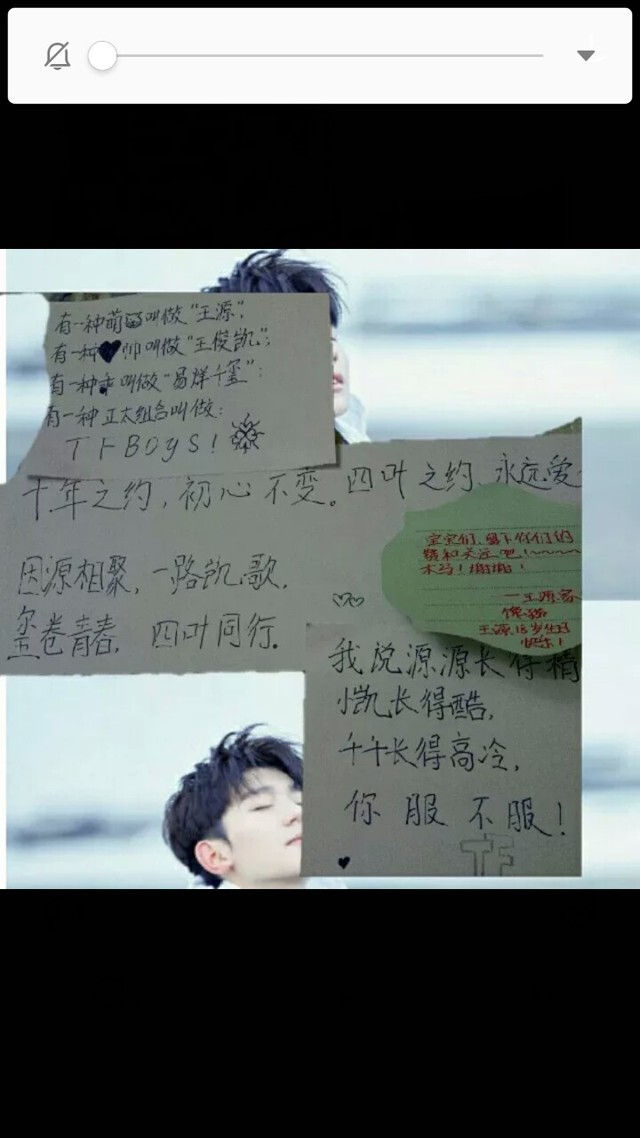 有一种萌叫做“王源”;
有一种帅叫做“王俊凯”;
有一种叫做“易烊千玺”:
有一种正太组合叫做:
TFBOYS!
十年之约,初心不变。四叶之约、永远爱
因源相聚,一路凯歌,
玺卷青春,四叶同行.
宝宝们、留下你们的
赞和关注吧!~~~~
木马!谢谢!
—王源家
王源18岁生日
快乐!
我说源源长得精
恺凯长得酷,
千千长得高冷,
你服不服!
TF